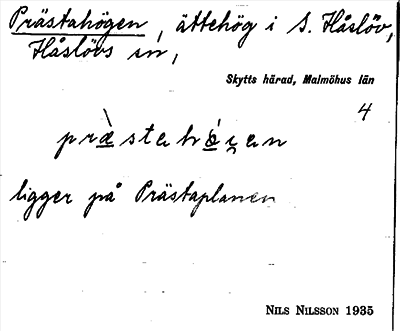 Prästahögen, ättehög i S. Håslöv,
Håslövs sn,
Skytts härad, Malmöhus län
4
præ̀stahǿgen
ligger på Prästaplanen
NILS NILSSON 1935